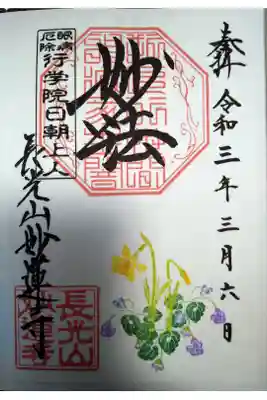 奉拝 令和三年三月六日
妙法
眼病
厄除
行学院日朝上人
長光山妙蓮寺
長光山
妙蓮寺